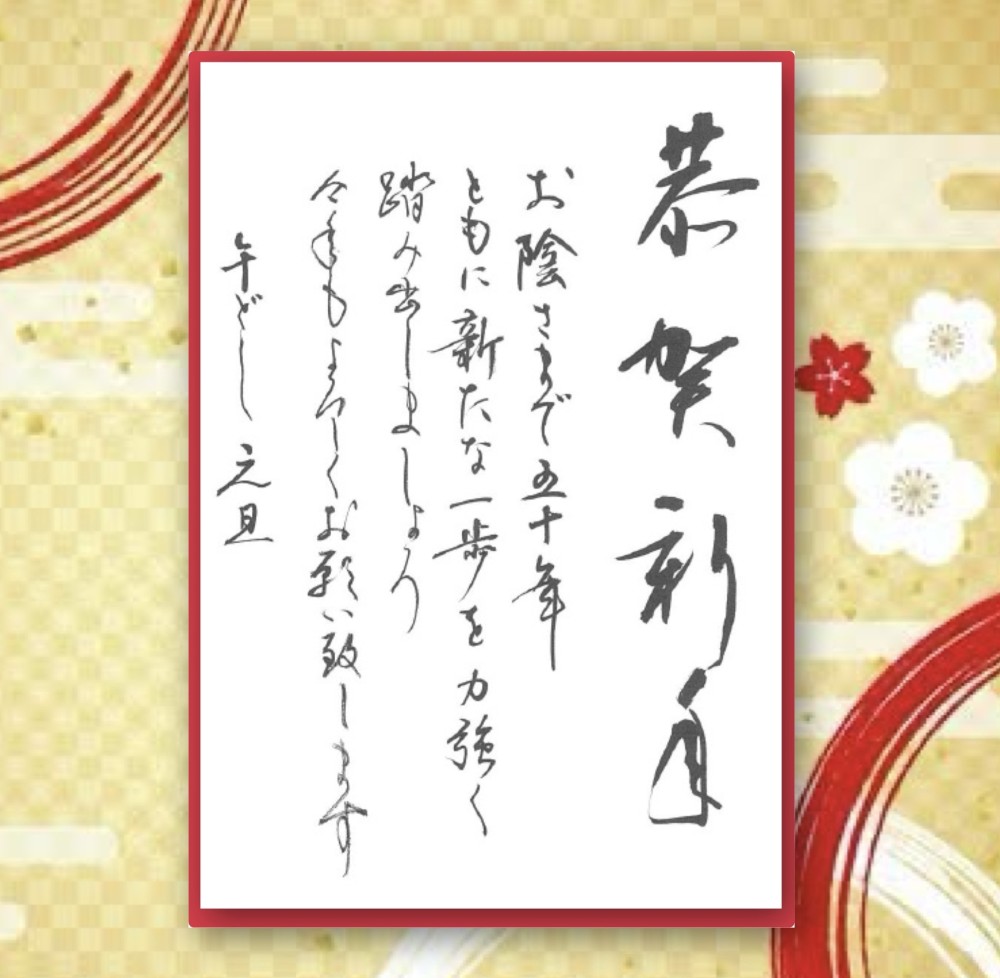 恭賀新年
お陰さまで五十年
ともに新たな一歩を力強く
踏み出しましょう
今年もよろしくお願い致します
午どし 元旦